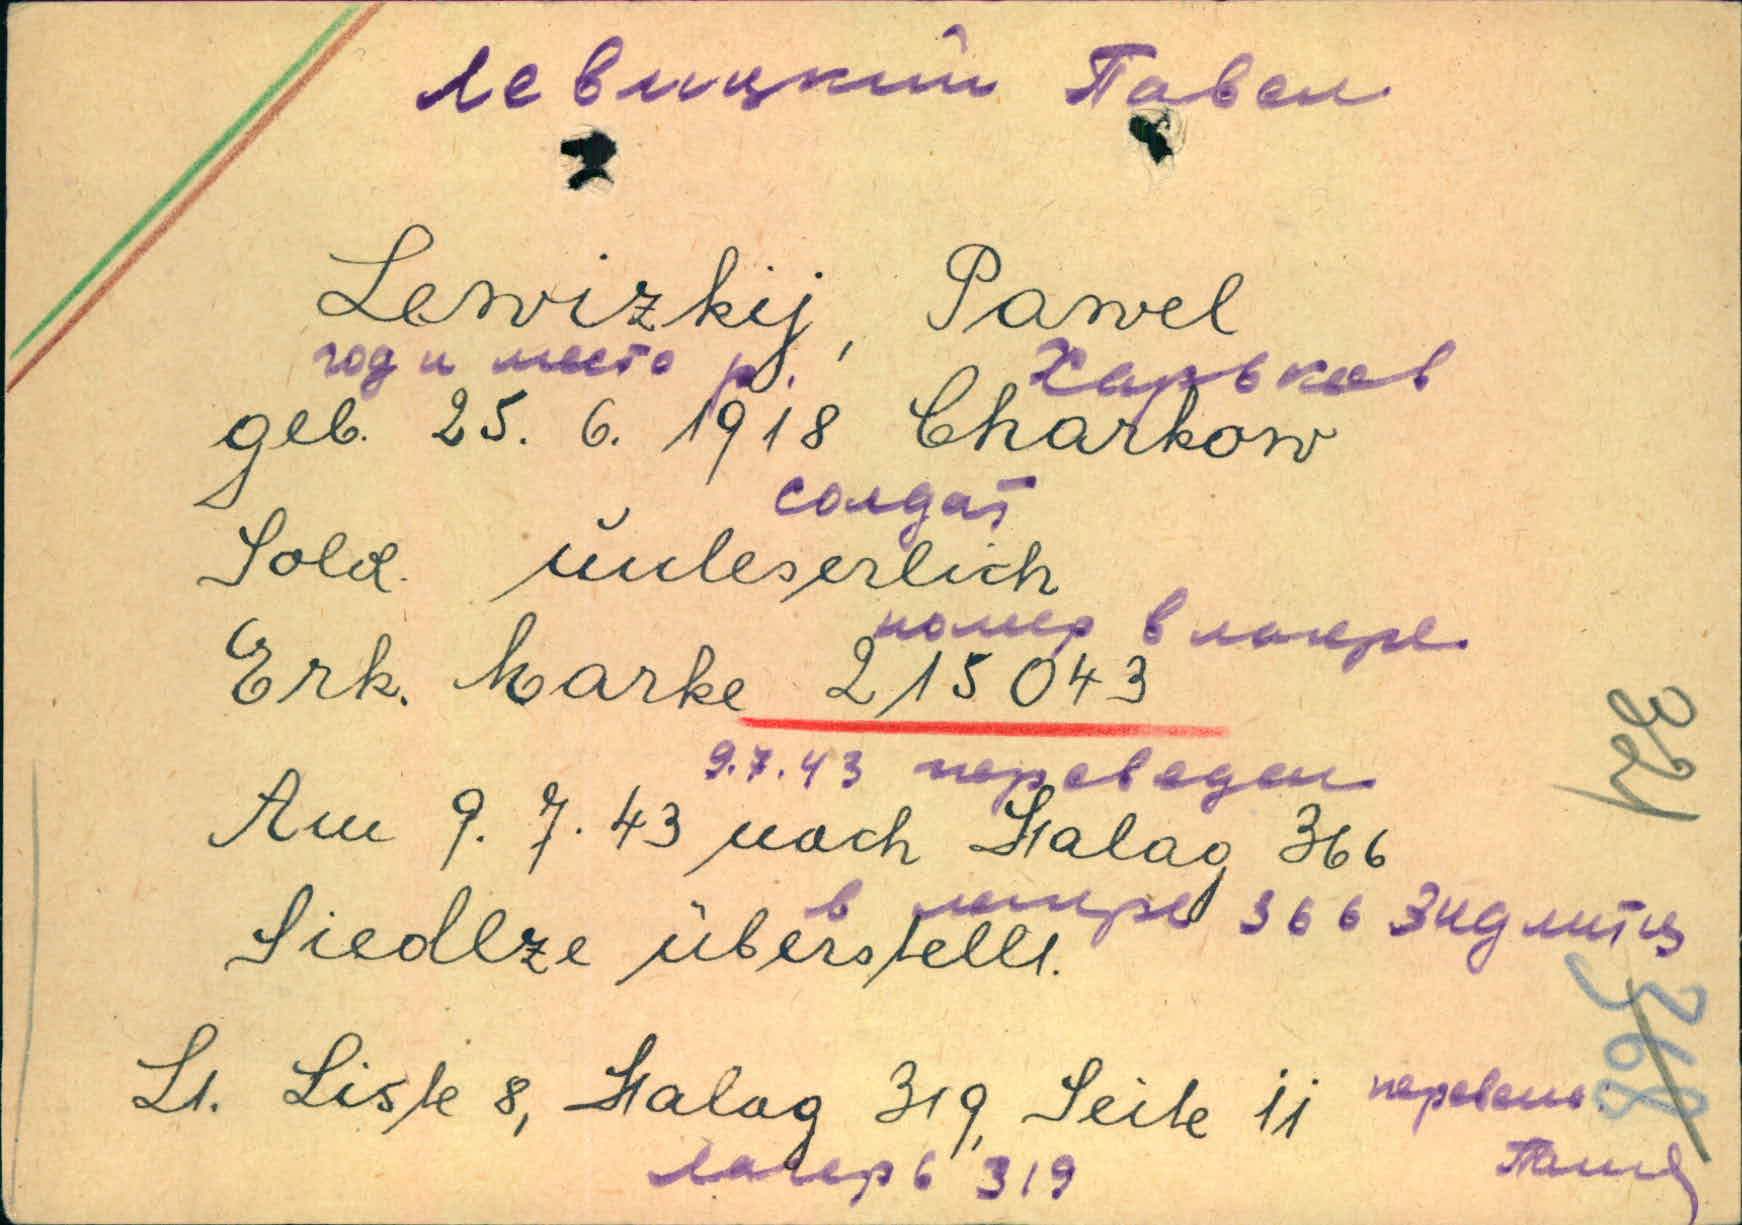 Левицкий Павел
Lewizkij, Pawel
год и место р. Харьков
geb. 25. 6. 1918 Charkow
солдат
Sold. unleserlich
номер в лагере
Erk. Marke 215043
321
9.7.43 переведен
Am 9. 7. 43 nach Stalag 366
в лагерь 366 Зидлитц
Siedlze überstellt.
368
Lt. Liste 8, Stalag 319, Seite 11
перевела:
лагерь 319